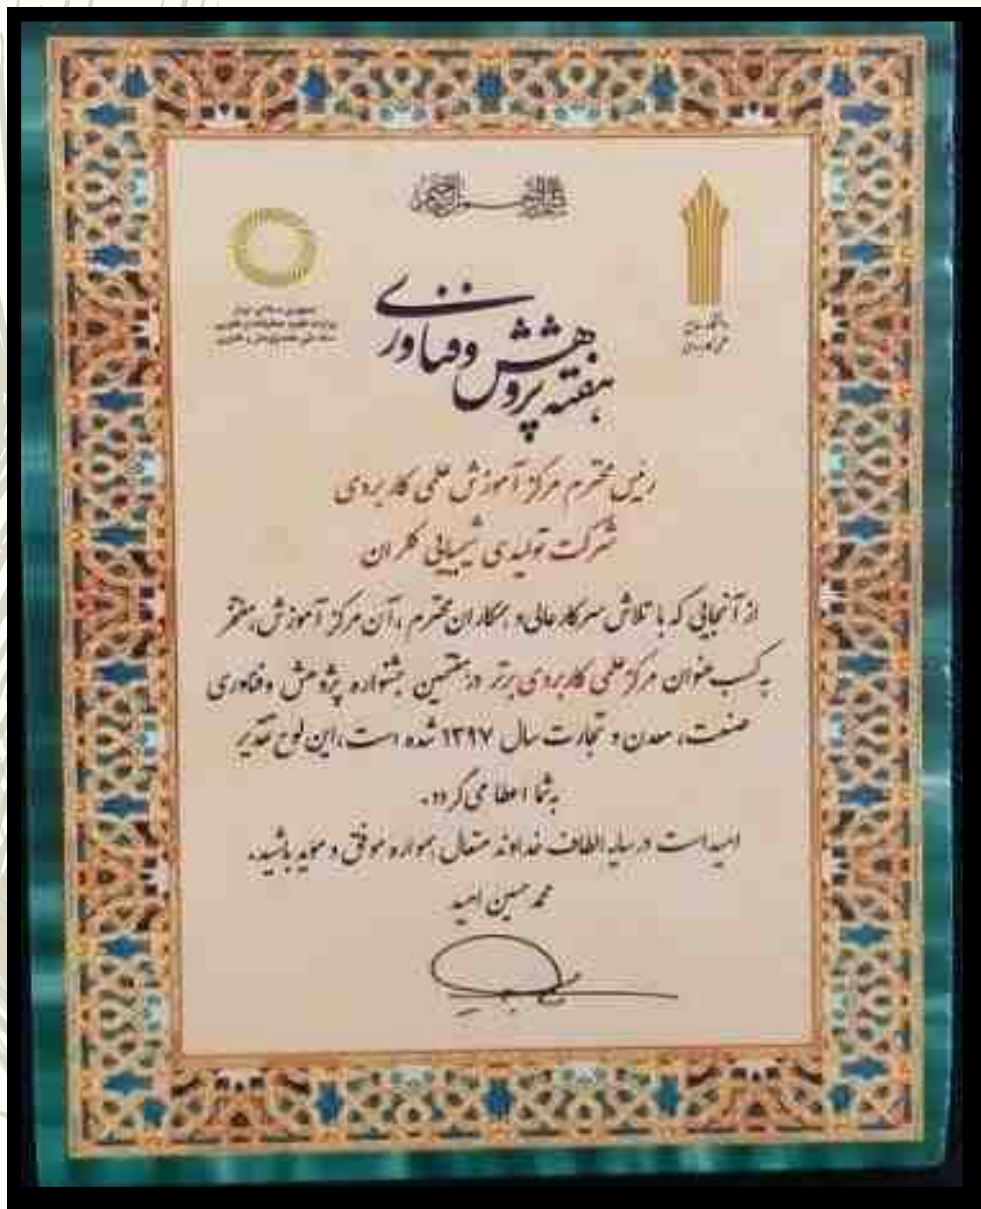 بسم الله الرحمن الرحیم
هفته پژوهش و فناوری
جمهوری اسلامی ایران
وزارت علوم، تحقیقات و فناوری
دانشگاه جامع
علمی کاربردی
رئیس محترم مرکز آموزش علمی کاربردی
شرکت تولیدی شیمیایی کلران
از آنجایی که با تلاش سرکار عالی و همکاران محترم ، آن مرکز آموزش، مفتخر
به کسب عنوان مرکز علمی کاربردی برتر در هفتمین جشنواره پژوهش و فناوری
صنعت، معدن و تجارت سال ۱۳۹۷ شده است، این لوح تقدیر
به شما اعطا می گردد.
امید است در سایه الطاف خداوند متعال همواره موفق و موید باشید.
محمد حسین امید